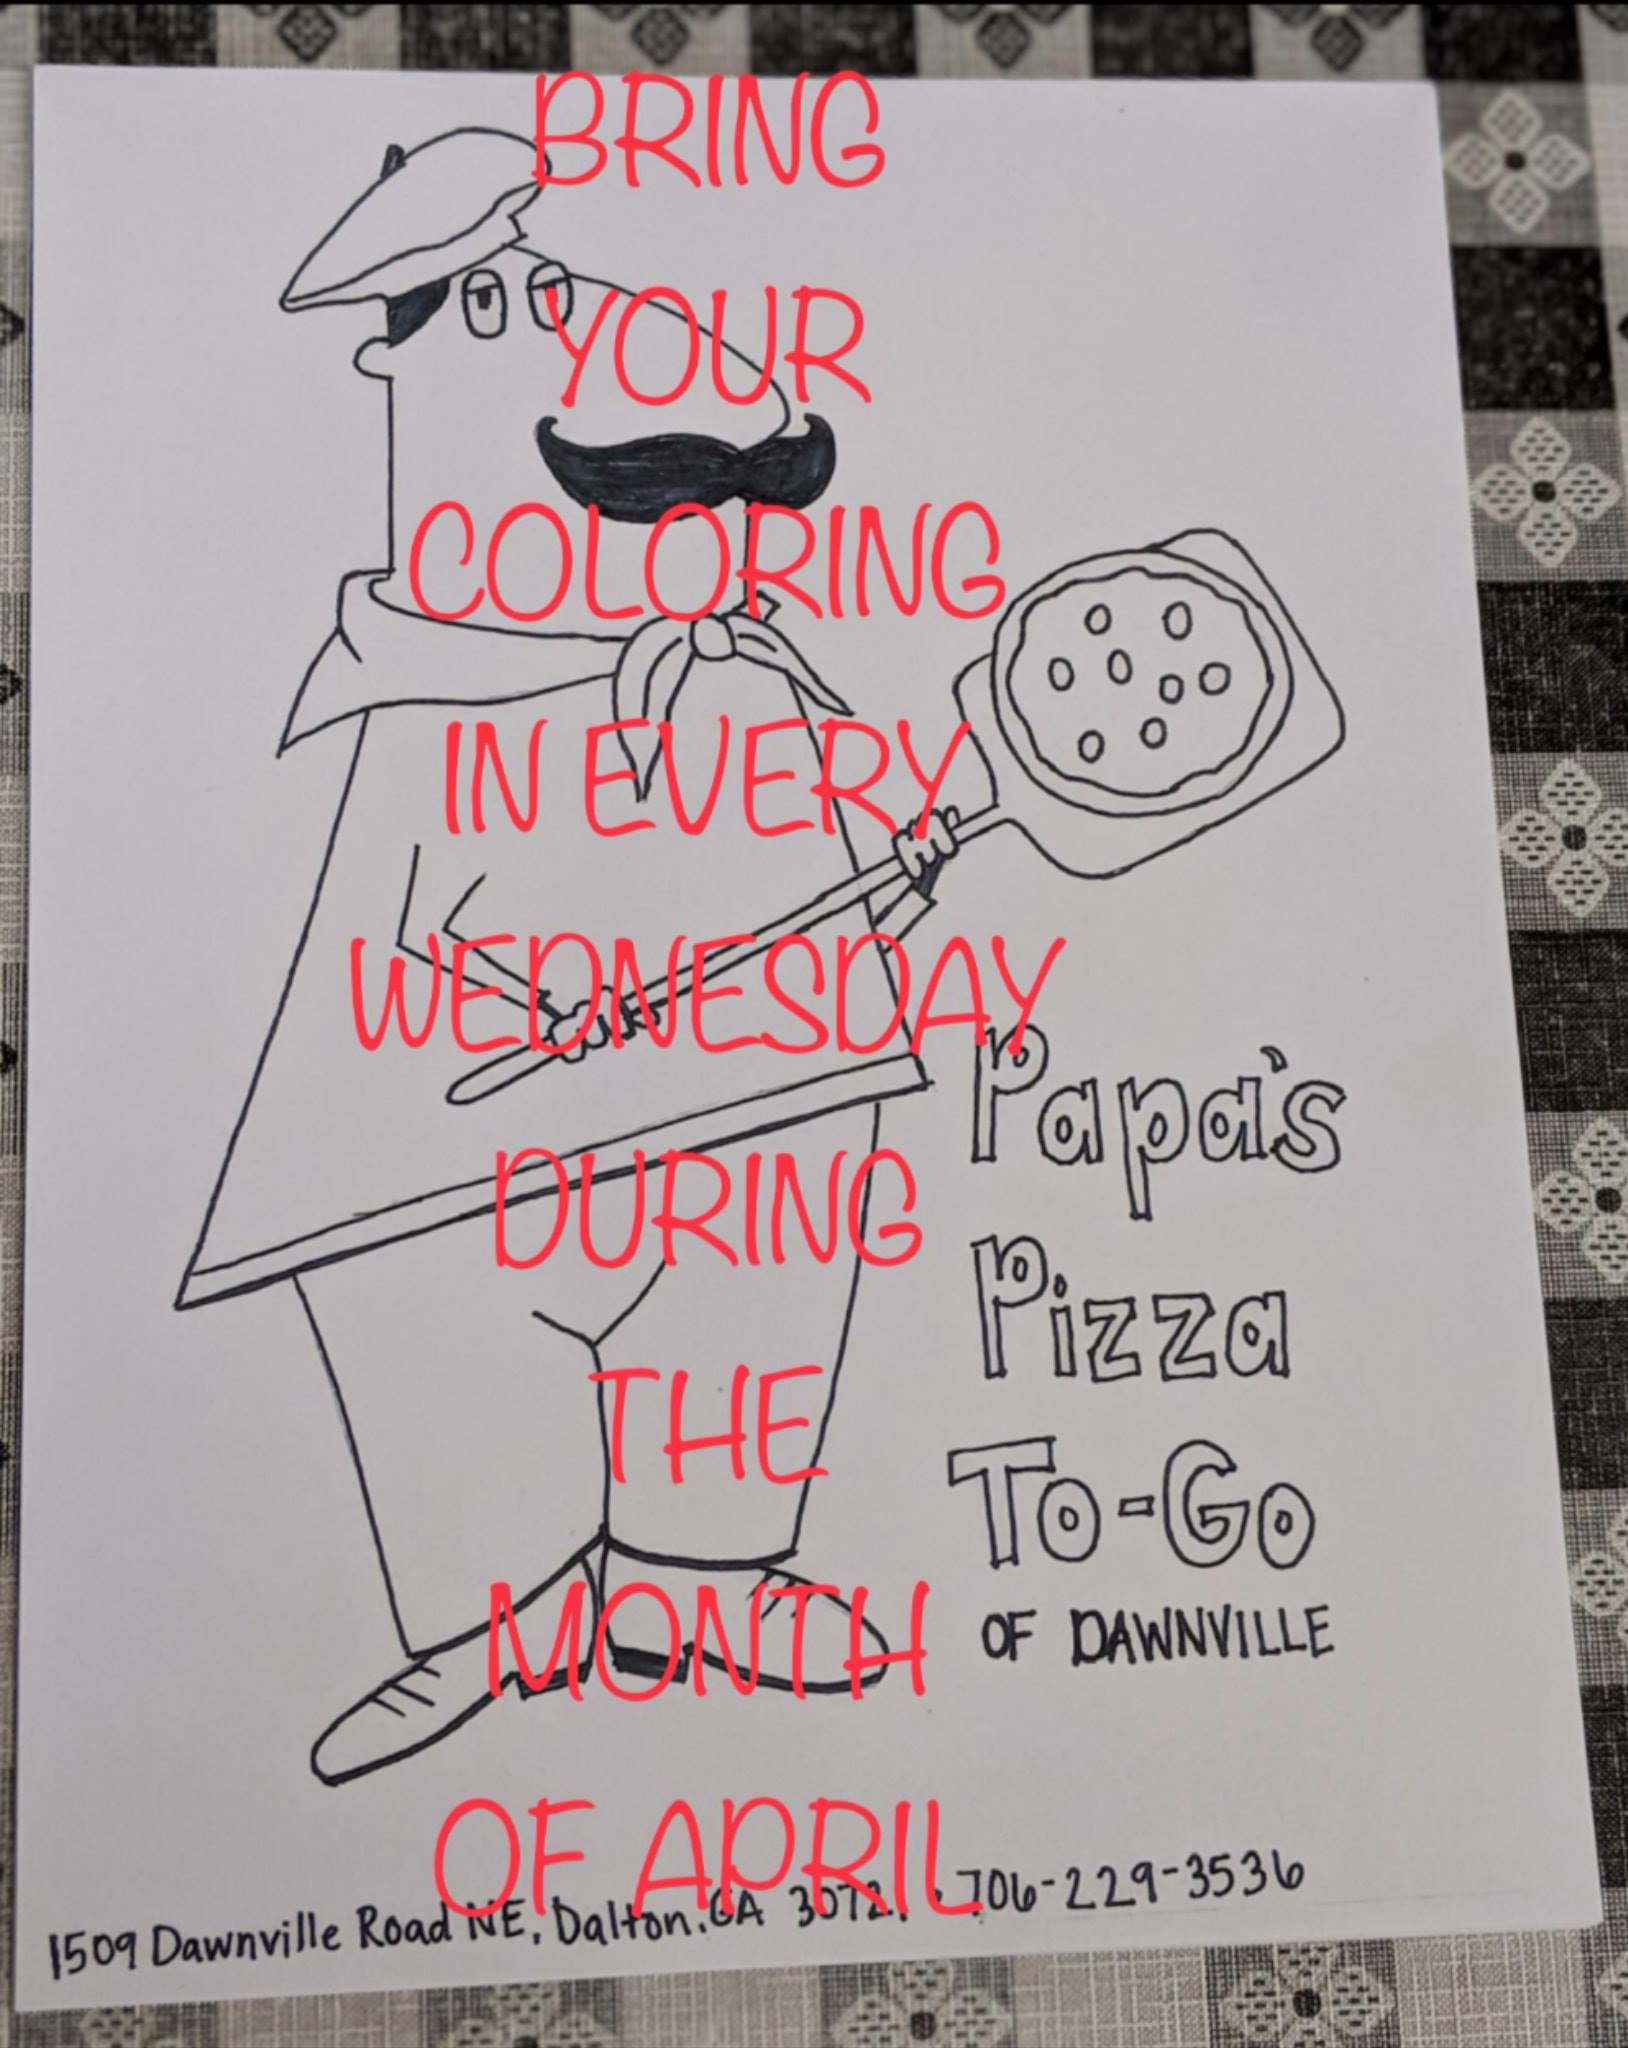 BRING
YOUR
COLORING
IN EVERY
WEDNESDAY
DURING
THE
MONTH
OF APRIL
Papa's
Pizza
To-Go
OF DAWNVILLE
1509 Dawnville Road NE, Dalton, GA 706-229-3536